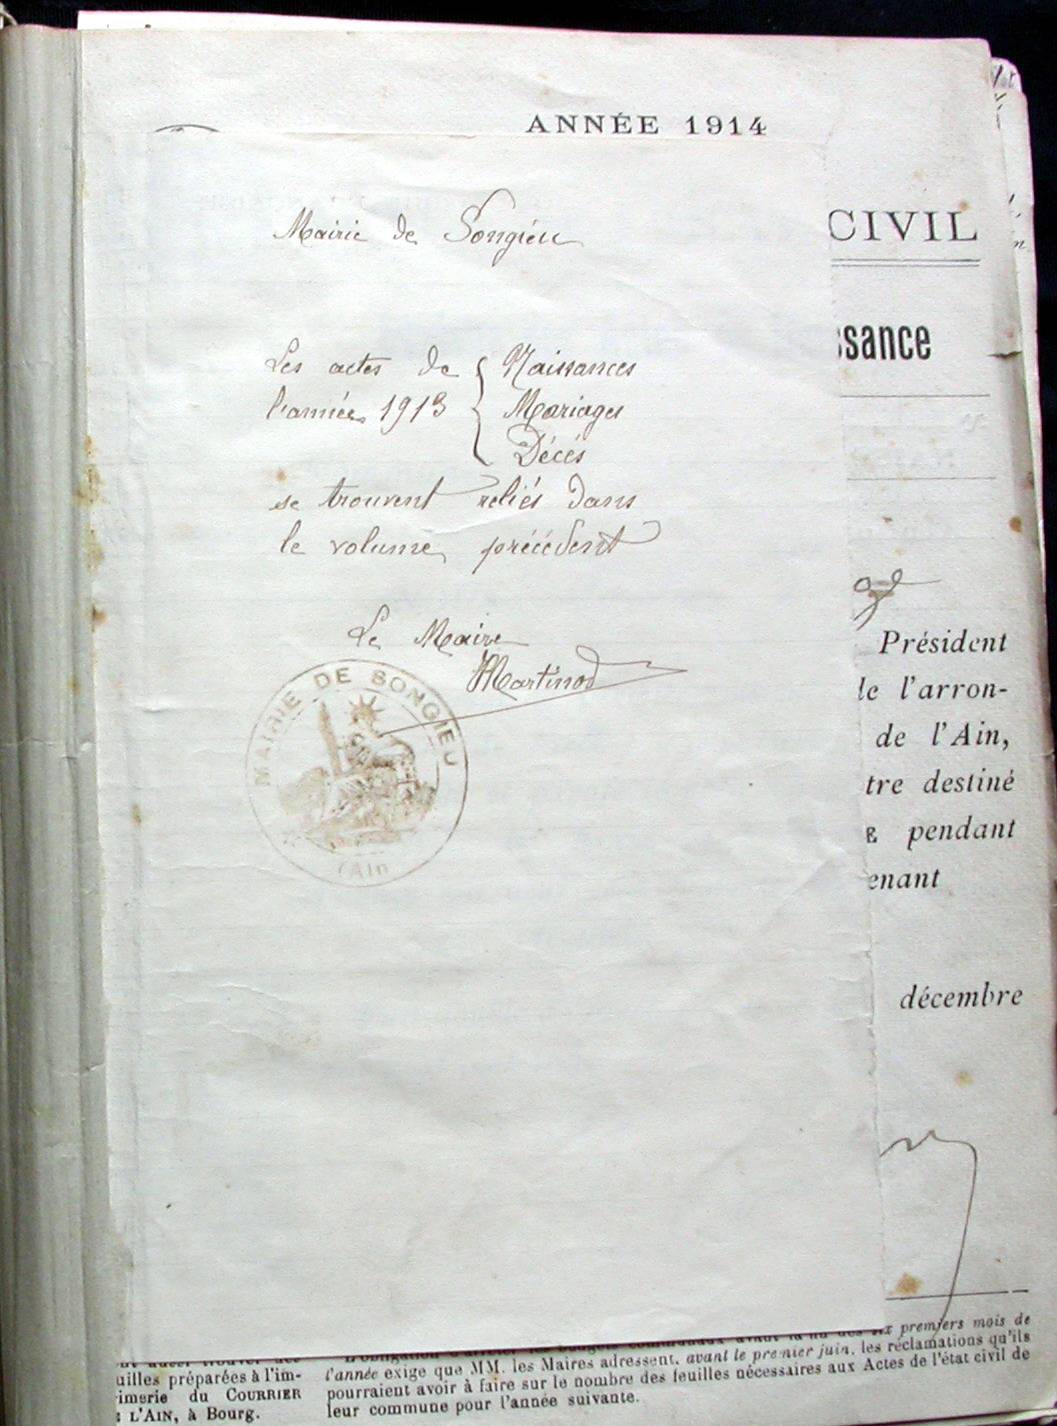 ANNÉE 1914
CIVIL
Mairie de Songieu
ssance
Les actes de { Naissances
l'année 1913 { Mariages
Décés
se trouvent reliés dans
le volume précédent
Le Maire
Martinod
MAIRIE DE SONGIEU
(Ain
Président
le l'arron-
de l'Ain,
tre destiné
E pendant
enant
décembre
uilles préparées à l'im-
imerie du COURRIER
L'AIN, à Bourg.
premiers mois de
l'année exige que MM. les Maires adressent, avant le premier juin, les réclamations qu'ils
pourraient avoir à faire sur le nombre des feuilles nécessaires aux Actes de l'état civil de
leur commune pour l'année suivante.